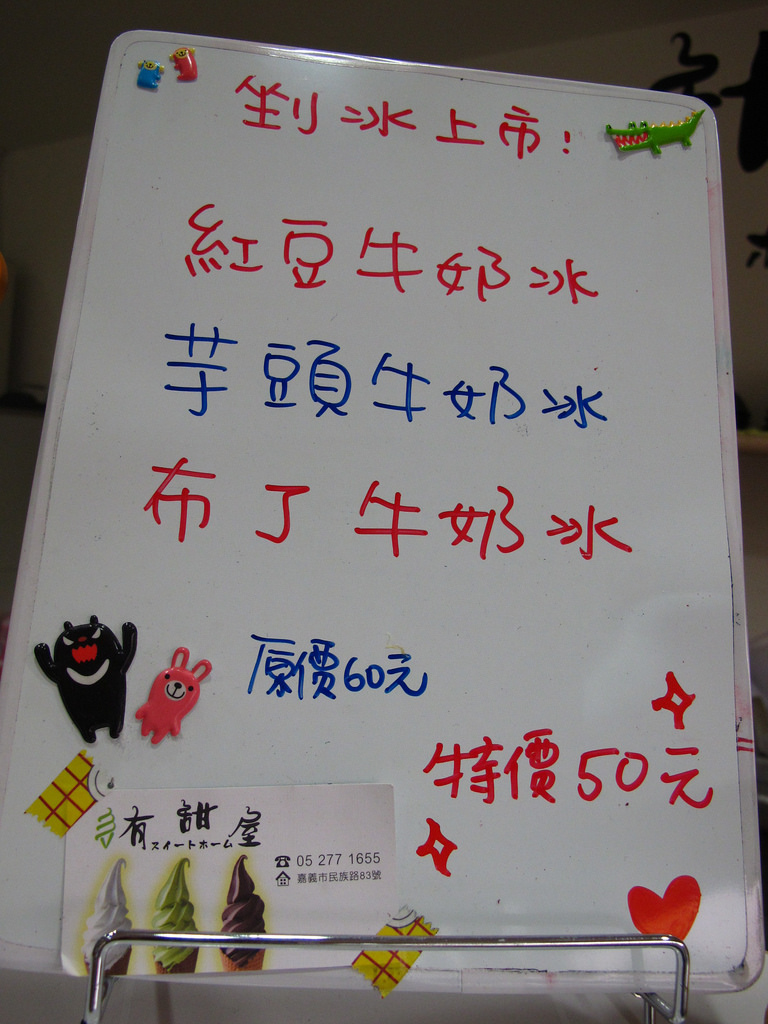 剉冰上市!
紅豆牛奶冰
芋頭牛奶冰
布丁牛奶冰
原價60元
特價50元
有甜屋
スイートホーム
05 277 1655
嘉義市民族路83號